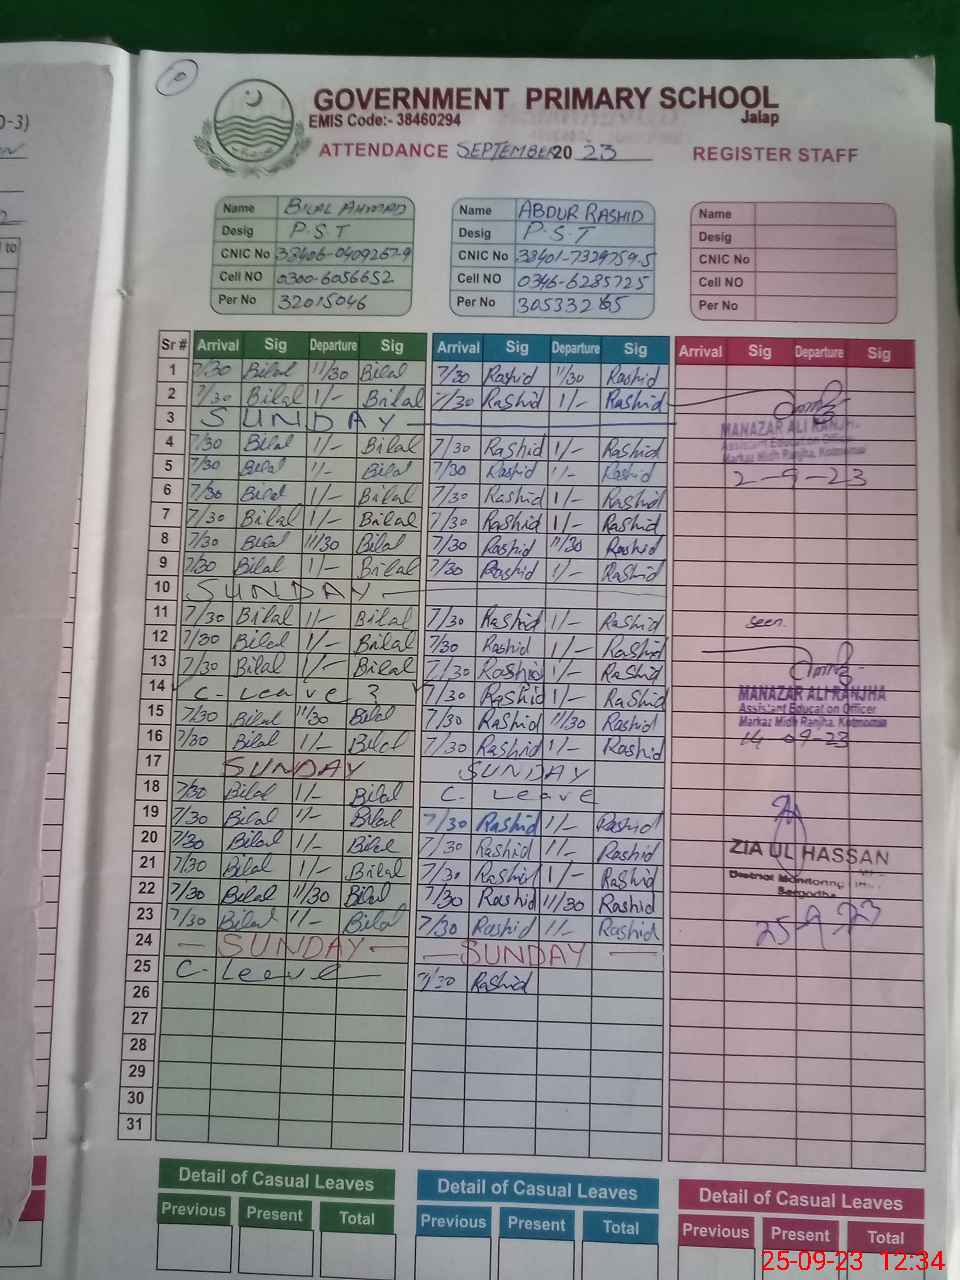 GOVERNMENT PRIMARY SCHOOL
EMIS Code:- 38460294 Jalap
ATTENDANCE SEPTEMBER 20 23 REGISTER STAFF
Name BILAL AHMAD Name ABDUR RASHID Name
Desig P.S.T Desig P.S.T Desig
CNIC No 38406-0409257-9 CNIC No 38401-7329759-5 CNIC No
Cell NO 0300-6056652 Cell NO 0346-6285725 Cell NO
Per No 32015046 Per No 30533265 Per No
Sr # Arrival Sig Departure Sig Arrival Sig Departure Sig Arrival Sig Departure Sig
1 7/30 Bilal 11/30 Bilal 7/30 Rashid 11/30 Rashid
2 7/30 Bilal 1/- Bilal 7/30 Rashid 1/- Rashid
3 SUNDAY MANAZAR ALI RANJHA
Assistant Education Officer
4 7/30 Bilal 1/- Bilal 7/30 Rashid 1/- Rashid Markaz Midh Ranjha, Kotmomin
5 7/30 Bilal 1/- Bilal 7/30 Rashid 1/- Rashid 2-9-23
6 7/30 Bilal 1/- Bilal 7/30 Rashid 1/- Rashid
7 7/30 Bilal 1/- Bilal 7/30 Rashid 1/- Rashid
8 7/30 Bilal 11/30 Bilal 7/30 Rashid 11/30 Rashid
9 7/30 Bilal 1/- Bilal 7/30 Rashid 1/- Rashid
10 SUNDAY
11 7/30 Bilal 1/- Bilal 7/30 Rashid 1/- Rashid seen.
12 7/30 Bilal 1/- Bilal 7/30 Rashid 1/- Rashid
13 7/30 Bilal 1/- Bilal 7/30 Rashid 1/- Rashid
14 C. Leave 7/30 Rashid 1/- Rashid MANAZAR ALI RANJHA
Assistant Education Officer
15 7/30 Bilal 11/30 Bilal 7/30 Rashid 11/30 Rashid Markaz Midh Ranjha, Kotmomin
16 7/30 Bilal 1/- Bilal 7/30 Rashid 1/- Rashid 14-09-23
17 SUNDAY SUNDAY
18 7/30 Bilal 1/- Bilal C. Leave
19 7/30 Bilal 1/- Bilal 7/30 Rashid 1/- Rashid
20 7/30 Bilal 1/- Bilal 7/30 Rashid 1/- Rashid ZIA UL HASSAN
21 7/30 Bilal 1/- Bilal 7/30 Rashid 1/- Rashid District Monitoring
22 7/30 Bilal 11/30 Bilal 7/30 Rashid 11/30 Rashid Sargodha
23 7/30 Bilal 1/- Bilal 7/30 Rashid 1/- Rashid 25 9 23
24 SUNDAY SUNDAY
25 C. Leave 7/30 Rashid
26
27
28
29
30
31
Detail of Casual Leaves Detail of Casual Leaves Detail of Casual Leaves
Previous Present Total Previous Present Total Previous Present Total
25-09-23 12:34